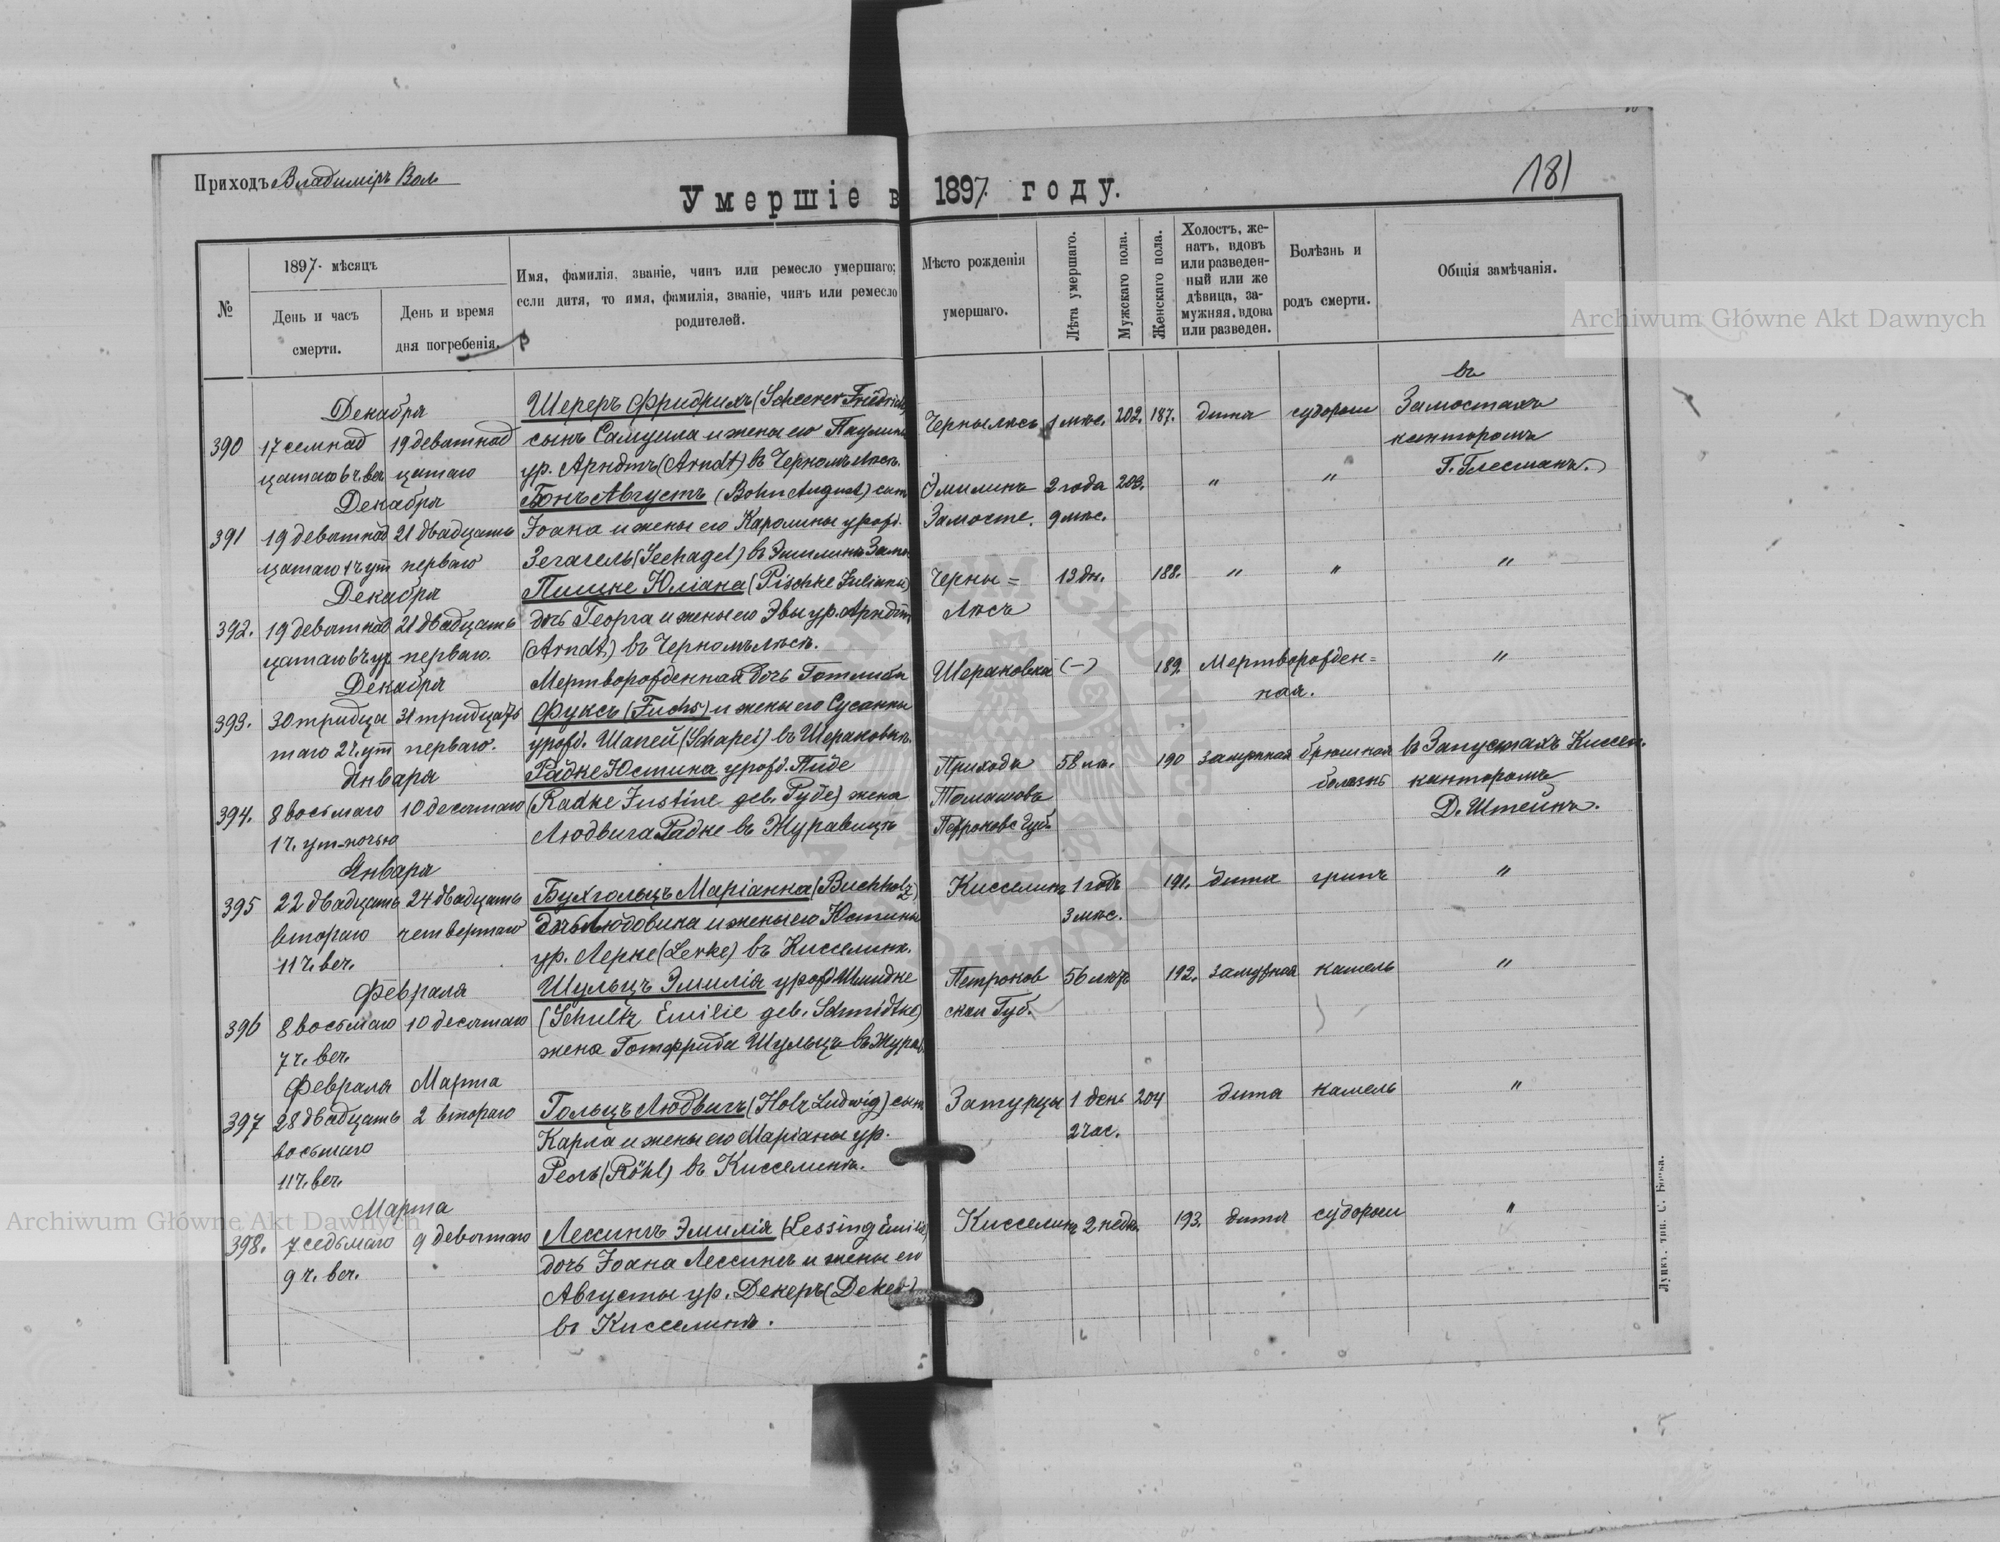 Приходъ Владиміръ Вол
Умершіе в 1897 году.
181
№
1897 мѣсяцъ
День и часъ смерти.
День и время дня погребенія.
Имя, фамилія, званіе, чинъ или ремесло умершаго;
если дитя, то имя, фамилія, званіе, чинъ или ремесло
родителей.
Мѣсто рожденія
умершаго.
Лѣта умершаго.
Мужскаго пола.
Женскаго пола.
Холостъ, же-
натъ, вдовъ
или разведен-
ный или же
дѣвица, за-
мужняя, вдова
или разведен.
Болѣзнь и
родъ смерти.
Общія замѣчанія.
Archiwum Główne Akt Dawnych
Декабря Шереръ Фридрихъ (Scheerer Friedrich) въ
390 17 семнад 19 девятнад сынъ Самуила и жены его Паулины Чернылѣсъ 1 мѣс. 202. 187. дитя судороги Замостахъ
цатаго вч. веч цатаго ур. Арндтъ (Arndt) въ Черномълѣсѣ. канторомъ
Г. Глесманъ.
Декабря Бонъ Августъ (Bohn August) сынъ Эмилинъ 2 года 203. " "
391 19 девятнад 21 двадцать Іоана и жены его Каролины урожд. Замосте. 9 мѣс.
цатаго 1 ч. ут перваго Зегагель (Seehagel) въ Эмилинъ Замо
Декабря Пишке Юліана (Pischke Juliana) Черны= 13 дн. 188. " " "
392. 19 девятнад 21 двадцать дочь Георга и жены его Эвы ур. Арндтъ Лѣсъ
цатаго вч. ут перваго. (Arndt) въ Черномълѣсѣ.
Декабря Мертворожденная дочь Готлиба (—) 189. Мертворожден= "
ная.
393. 30 тридца 31 тридцать Фуксъ (Fuchs) и жены его Сусанны
таго 2 ч. ут перваго. урожд. Шапей (Schapei)
Января Радке Юстина урожд. Пиде Прихода 58 лѣ. 190 замужная брюшная въ Запустахъ Киссел.
болезнь канторомъ
394. 8 восьмаго 10 десятаго (Radke Justine geb. жена Томашовъ Д. Штейнъ.
1 ч. ут-ночью Людвига Радке въ Журавицѣ Петроковс Губ.
Января
395 22 двадцать 24 двадцать Бухгольцъ Маріанна (Buchholz) Кисселинъ 1 годъ 191. дитя грипъ "
втораго четвертаго дочь Людовика и жены его Юстины 3 мѣс.
11 ч. веч. ур. Лерке (Lerke) въ Кисселинѣ.
Февраля Шульцъ Эмилія урожд. Шмидке Петроков 56 лѣтъ 192. замужная кашель "
396 8 восьмаго 10 десятаго (Schultz Emilie geb. Schmidtke) ской Губ.
7 ч. веч. жена Готфрида Шульцъ въ Журав.
Февраля Марта
397 28 двадцать 2 втораго Гольцъ Людвигъ (Holz Ludwig) сынъ Затурцы 1 день 204 дитя кашель "
восьмаго Карла и жены его Маріаны ур. 2 час.
11 ч. веч. Рель (Röhl) въ Кисселинѣ.
Марта
Archiwum Główne Akt Dawnych
398. 7 седьмаго 9 девятаго Лессингъ Эмилія (Lessing Emilie) Кисселинъ 2 недѣ. 193. дитя судороги "
9 ч. веч. дочь Іоана Лессингъ и жены его
Августы ур. Декеръ (Deker)
въ Кисселинѣ.
Луцкъ, тип. С. Бойка.